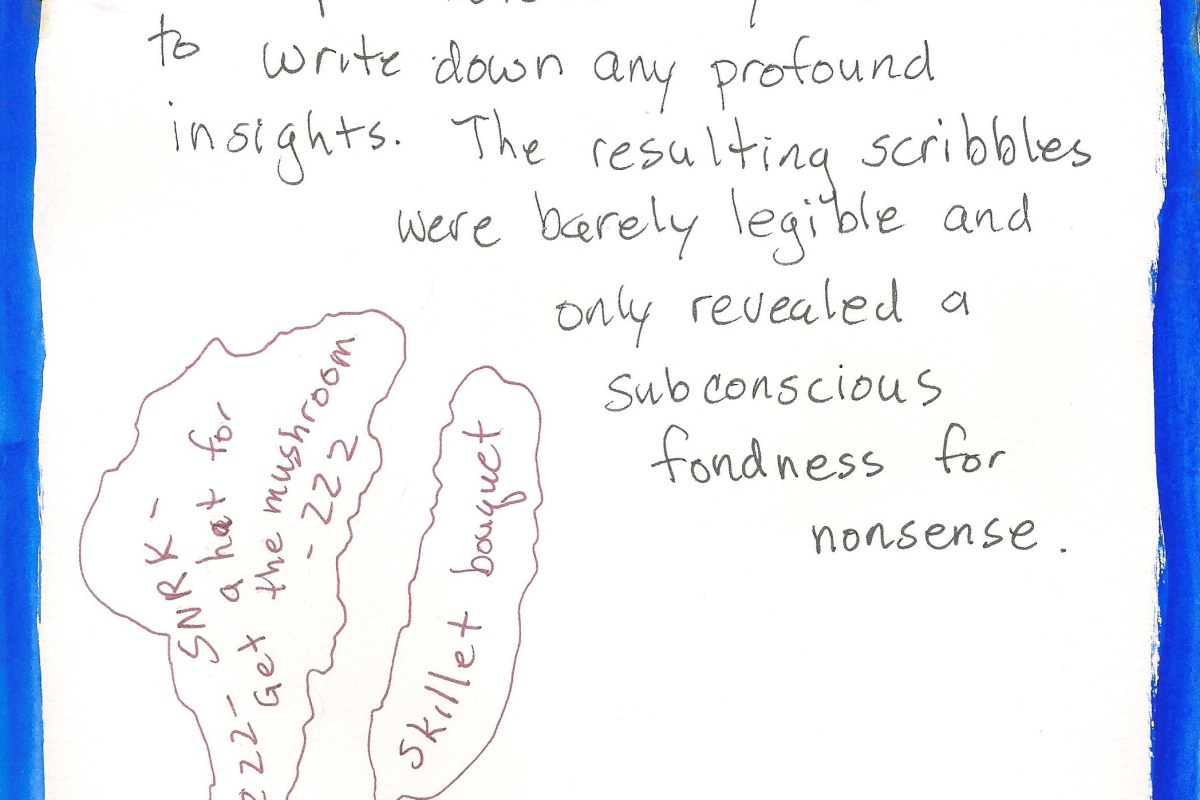 to write down any profound
insights. The resulting scribbles
were barely legible and
only revealed a
subconscious
fondness for
nonsense.
zzz- SNRK-
Get a hat for
the mushroom
- zzz
Skillet bouquet